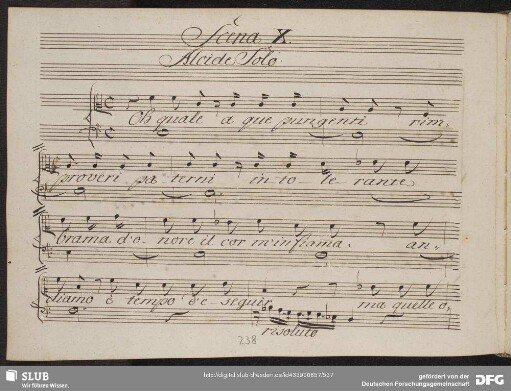 Scena X.
Alcide Solo.
Oh quale a que pungenti rim,
proveri pa-terni in-to-le-rante,
brama d'o-nore il cor m'infiama. an-
diamo è tempo d'e-seguir ma quelle o,
resoluto
238
SLUB
Wir führen Wissen.
gefördert von der
Deutschen Forschungsgemeinschaft
DFG